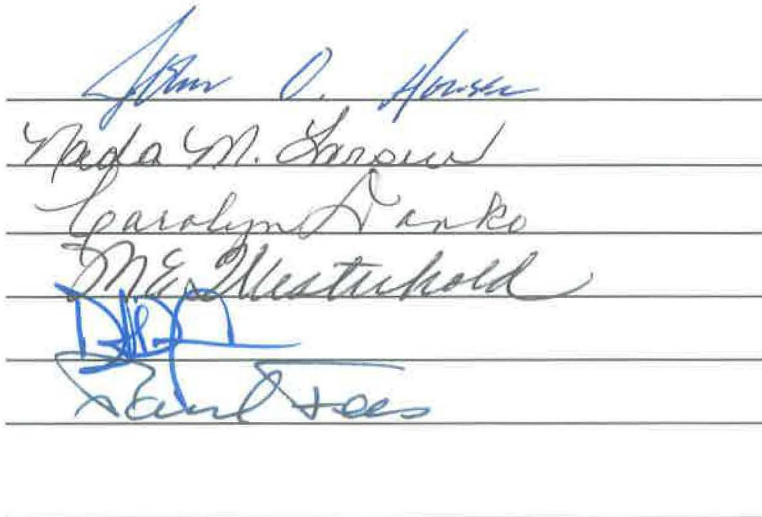 John O. Houser
Nada M. Larson
Carolyn Danko
M.E. Westerhold
Paul Fees